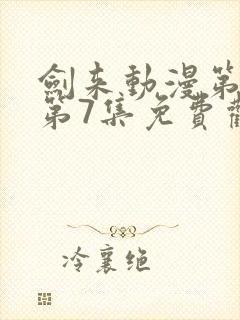 劍来動漫第
第7集免費觀
冷襄绝